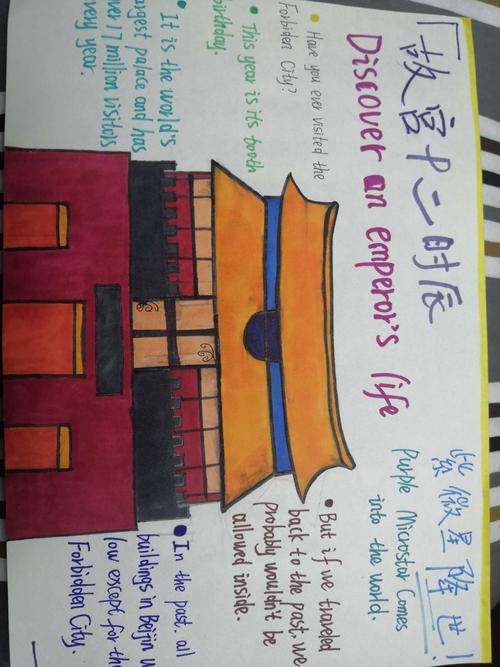 「故宫十二时辰
Discover an emperor's life
紫微星降世!
Purple Microstar Comes
into the world.
Have you ever visited the
Forbiden City?
This year is its 600th
birthday.
It is the world's
argest palace and has
ver 17 million visitors
very year.
But if we traveled
back to the past, we
probably wouldn't be
allowed inside.
In the past, all
buildings in Beijin w
low except for th
Forbidden City.